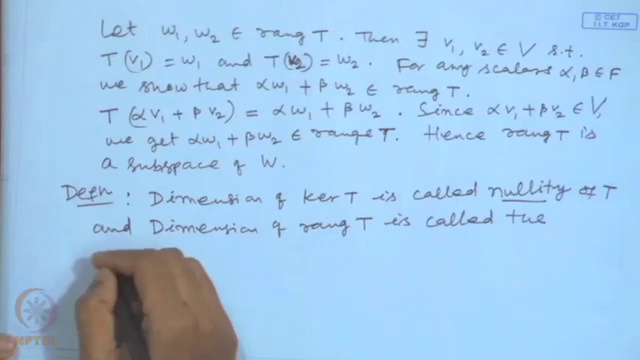 © CET
I.I.T. KGP
Let w₁, w₂ ∈ rang T. Then ∃ v₁, v₂ ∈ V s.t.
T(v₁) = w₁ and T(v₂) = w₂. For any scalars α, β ∈ F
we show that αw₁ + βw₂ ∈ rang T.
T(αv₁ + βv₂) = αw₁ + βw₂. Since αv₁ + βv₂ ∈ V,
we get αw₁ + βw₂ ∈ range T. Hence rang T is
a subspace of W.
Defn : Dimension of ker T is called nullity of T
and Dimension of rang T is called the
NPTEL